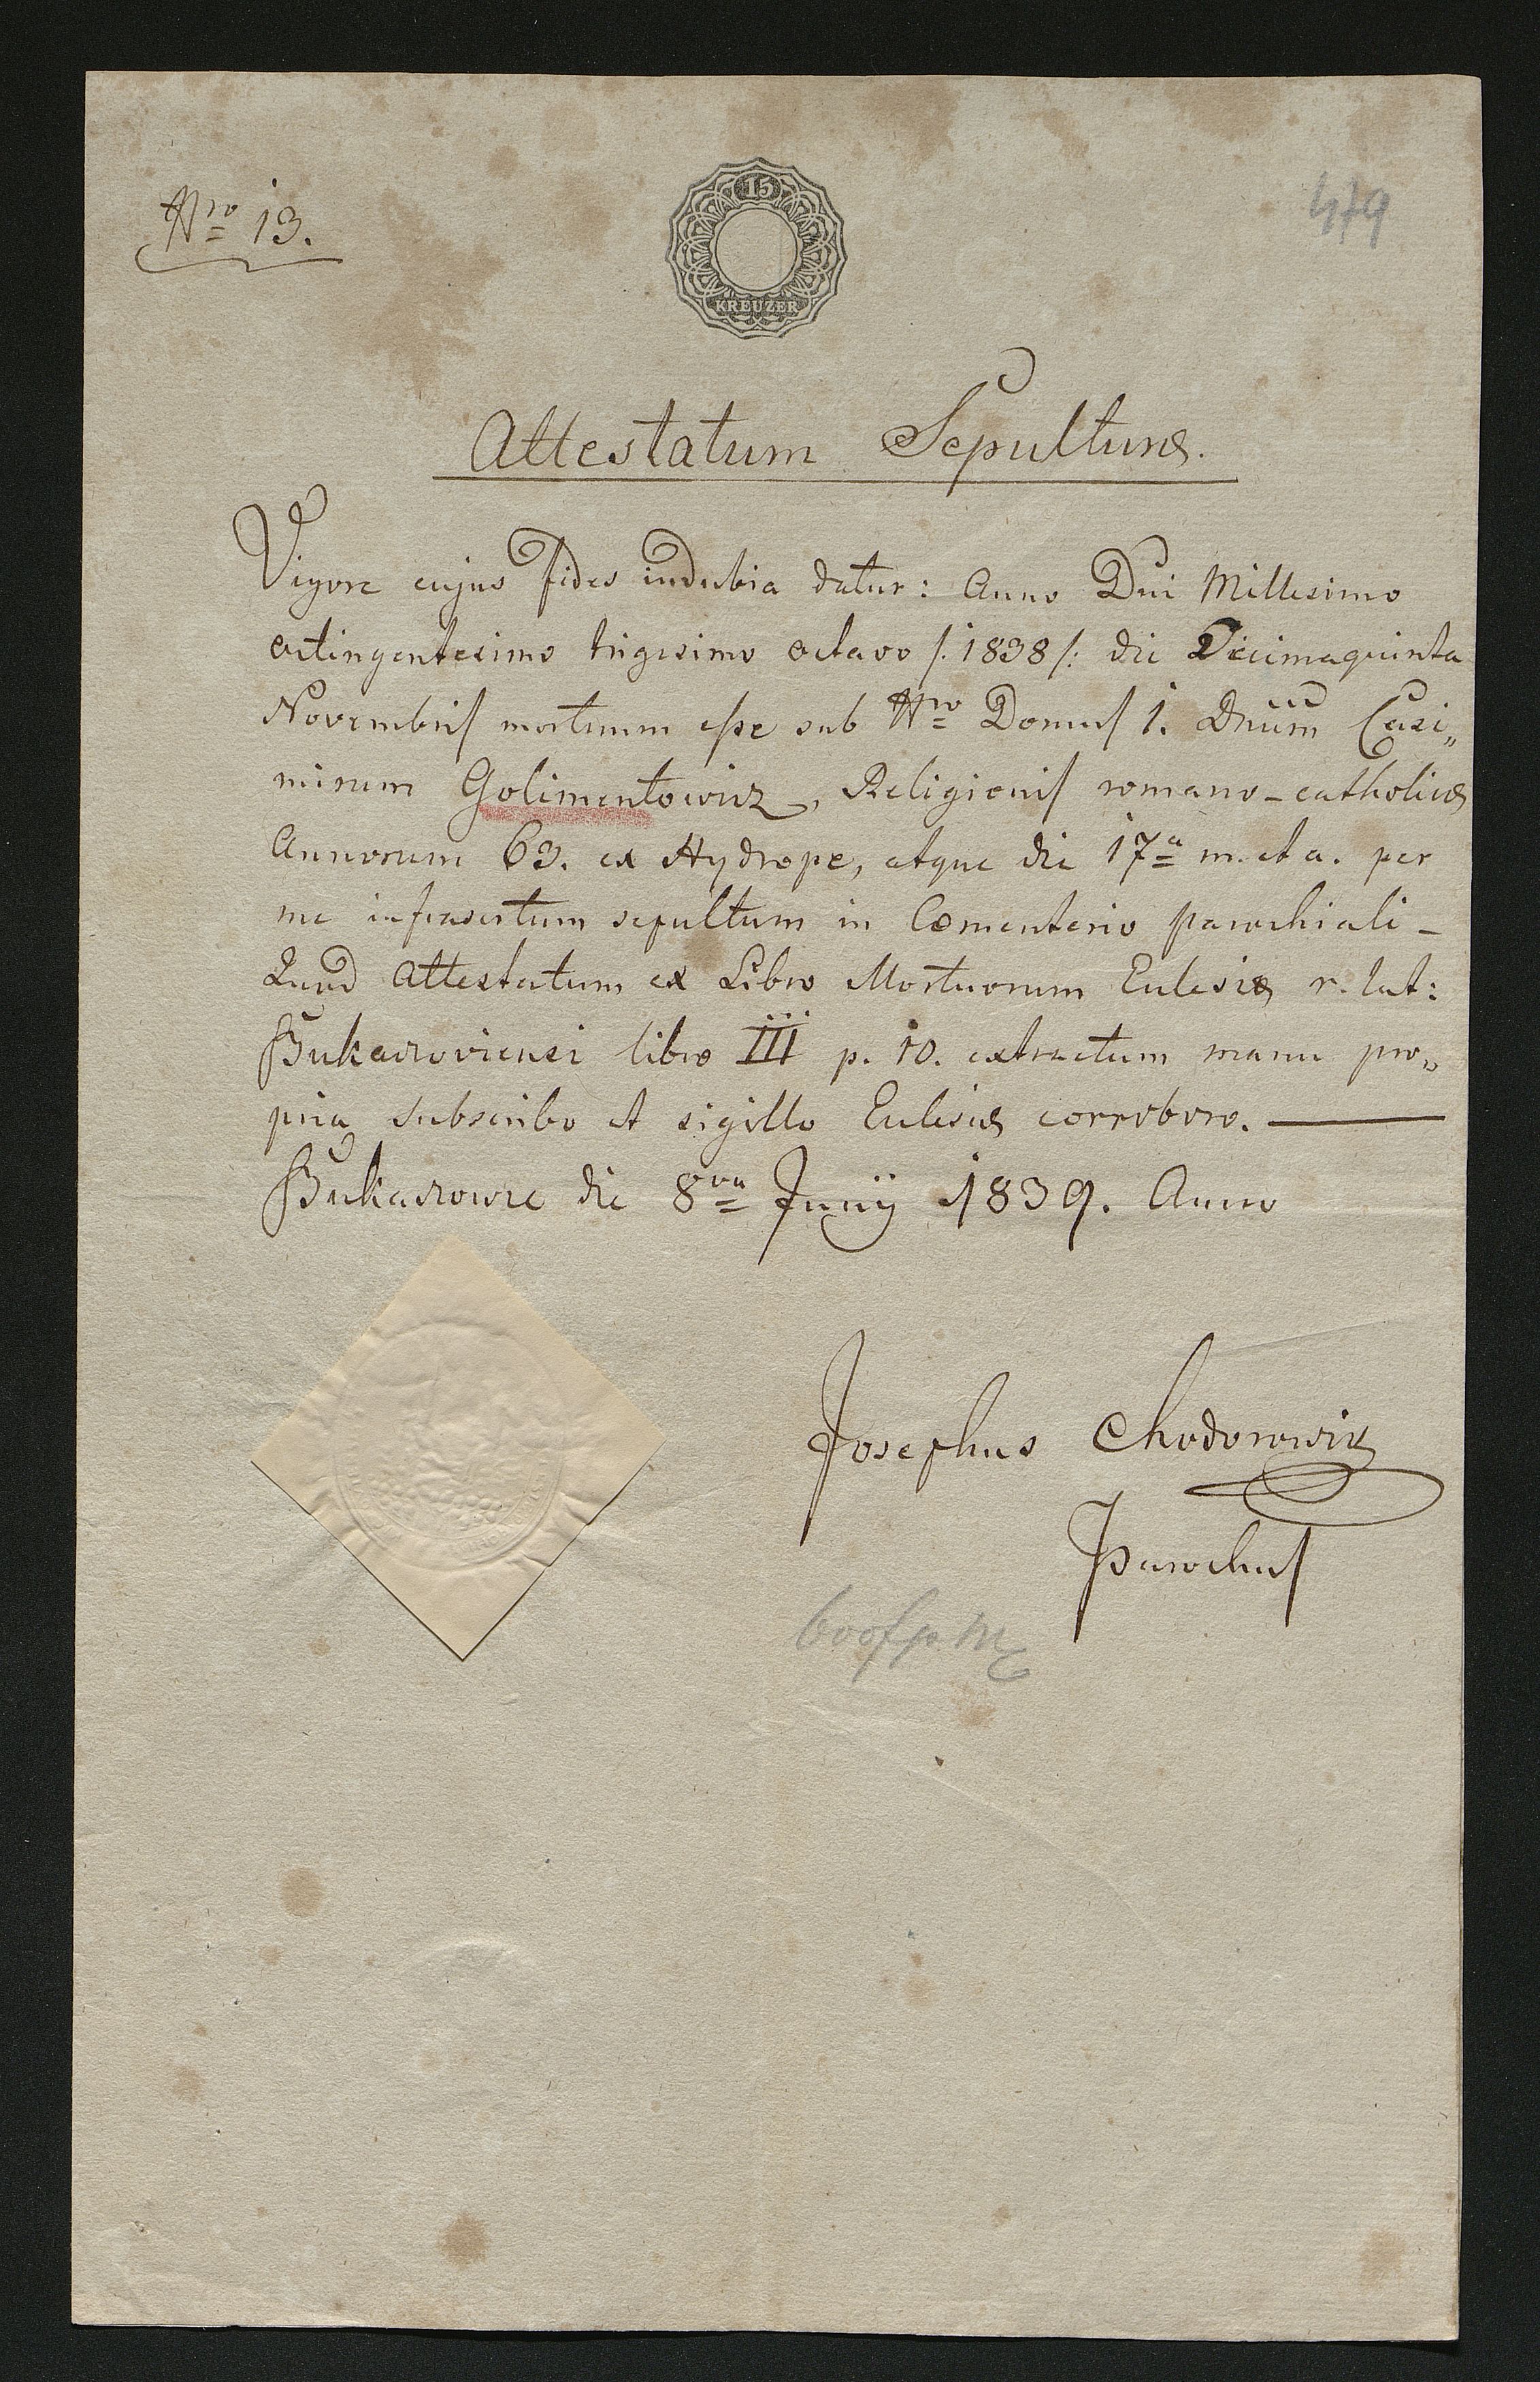 Nro 13.
15
KREUZER
479
Attestatum Sepulturæ.
Vigore cujus fides indubia datur: Anno Dni Millesimo
octingentesimo trigesimo octavo /: 1838 /: die Decimaquinta
Novembris mortuum esse sub Nro Domus 1. Dnum Casi„
mirum Golimentowicz, Religionis romano-catholicæ
Annorum 63. ex Hydrope, atque die 17a m. et a. per
me infrascriptum sepultum in Cœmenterio parochiali –
Quod Attestatum ex Libro Mortuorum Eclesiæ r. lat:
Bukaczoviensi libro III p. 10. extractum manu pro„
pria subscribo et sigillo Eclesiæ corroboro. —
Bukaczowce die 8va Junÿ 1839. Anno
Josephus Chodorowicz
Parochus